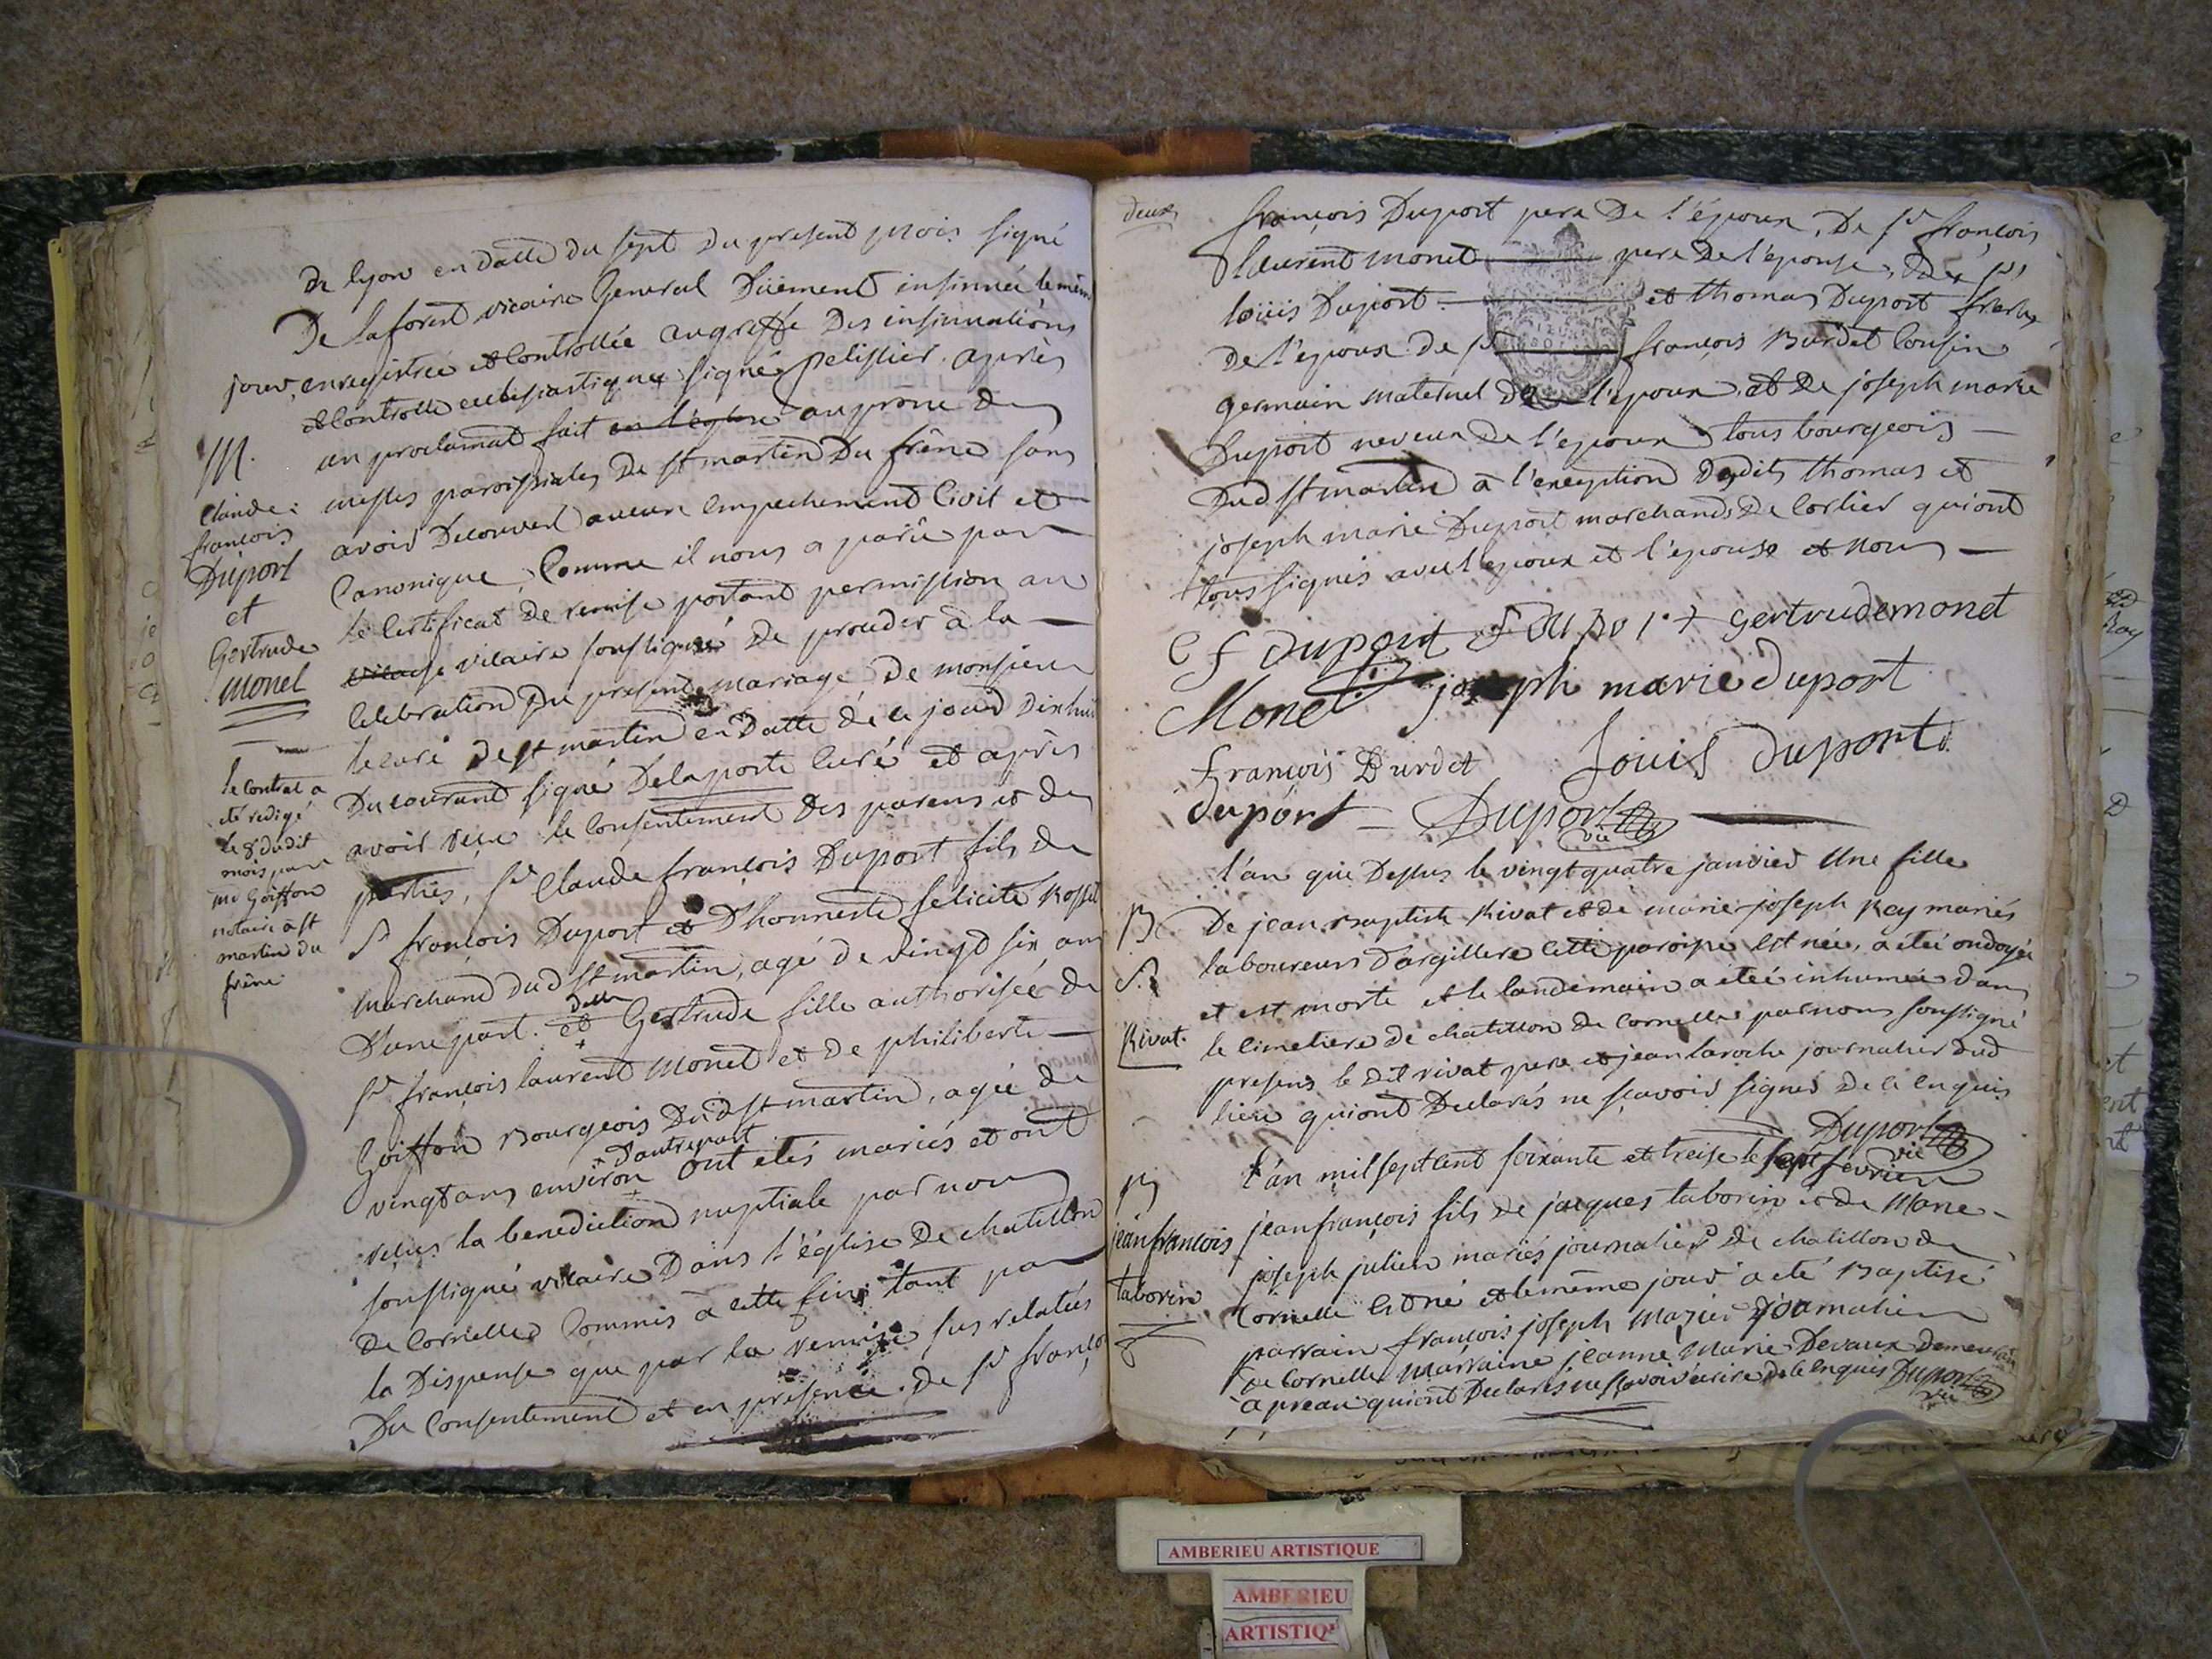 de lyon en datte du sept du present mois signé
De laforest vicaire General Düement insinuée le mêm
jour, enregistrée et Controllée au greffe Des insinuations
et Controlle ecclesiastique signé pelissier. après
un proclamat fait en l'église au prône des
messes paroissiales De st martin Du frêne sans
avoir Decouvert aucun Empechement Civil et
Canonique, Comme il nous a parû par
le Certificat de remise portant permission au
vicaire soussigné De proceder à la
Celebration Du present mariage De monsieur
le curé de st martin en Datte de ce jour Dixhuit
Du courant signé Delaporte Curé et après
avoir reçu le Consentement Des parens et des
parties, sr Claude françois Duport fils de
sr françois Duport et D'honneste felicité Rosset
marchand dud st martin, agé de vingt six ans
D'une part. et delle Gertrude fille authorisée de
sr françois laurent Monet et de philiberte
Goiffon Bourgeois Dud st martin, agée de
vingt ans environ + D'autre part ont étés mariés et ont
reçus la benediction nuptiale par nous
soussigné vicaire Dans l'église De chatillon
de Cornelle Commis à cette fin tant par
la Dispense que par la remise sus relatée
Du Consentement et en présence de sr françois
M.
Claude
françois
Duport
et
Gertrude
Monet
le contrat a
été redigé
le 8 dudit
mois par
me Goiffon
notaire à st
martin du
frêne
deux
françois Duport pere De l'époux, De sr françois
laurent monet pere De l'épouse, des srs
loüis Duport et thomas Duport freres
De l'epoux de sr françois Burdet Cousin
germain maternel De l'epoux, et De joseph marie
Duport neveux de l'epoux tous bourgeois
Dud st martin à l'exception Desdits thomas et
joseph marie Duport marchands De Corlier qui ont
tous signés avec l'epoux et l'epouse et nous
C f Duport f Duport Gertrude monet
Monet joseph marie duport
françois Burdet Louis Duport
duport Duport vic
l'an que Dessus le vingt quatre janvier Une fille
De jean Baptiste Rivat et de marie joseph Rey mariés
laboureurs D'argillere cette paroisse est née, a étée ondoyée
et est morte et le landemain a étée inhumée dans
le cimetiere de chatillon de Cornelle par nous soussigné
presens le dit rivat pere et jean laroche journalier dud
lieu qui ont Declarés ne sçavoir signer de ce enquis
Duport vic
B.
S.
Rivat.
L'an mil sept cent soixante et treise le sept février
jean françois fils de jacques taborin et de Marie
joseph julien mariés journaliers de chatillon de
Cornelle est né et le même jour a eté Baptisé
parrain françois joseph Mazier journalier
de Cornelle marraine jeanne Marie Devaux demeurant
a preau qui ont Declarés ne sçavoir écrire de ce enquis Duport
vic
B
jean françois
taborin
AMBERIEU ARTISTIQUE
AMBERIEU
ARTISTIQ